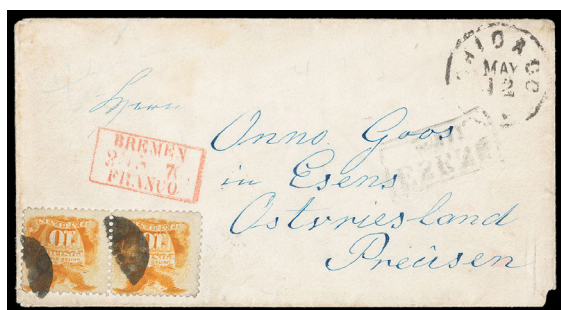 CHICAGO
MAY
12
Herrn
BREMEN
FRANCO
Onno Goos
in Esens
Ostvriesland
Preüsen
10
10